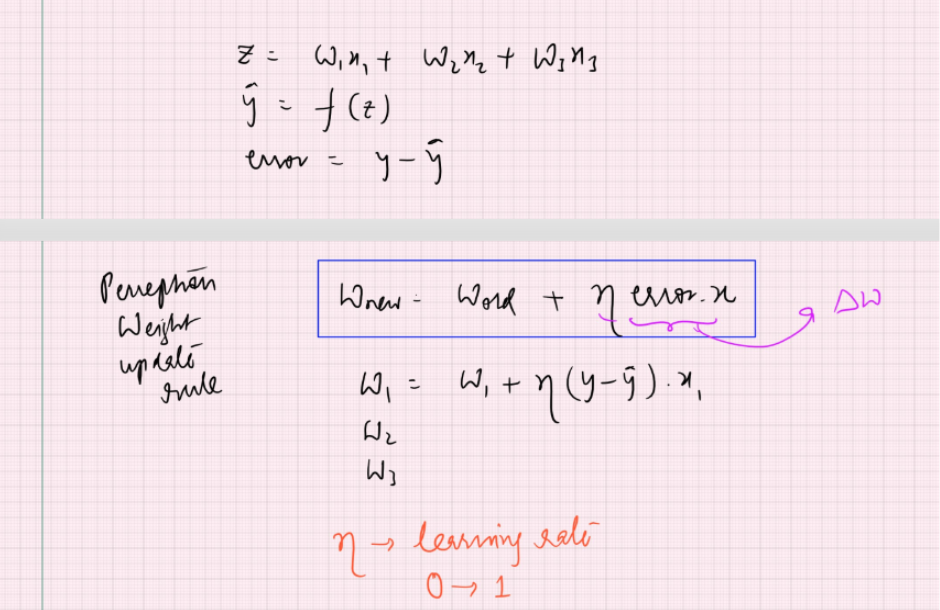 z = ω₁x₁ + ω₂x₂ + ω₃x₃
ŷ = f(z)
error = y - ŷ
Perceptron
Weight
update
rule
ωnew = ωold + η error.x
Δω
ω₁ = ω₁ + η(y-ŷ).x₁
ω₂
ω₃
η → learning rate
0 → 1